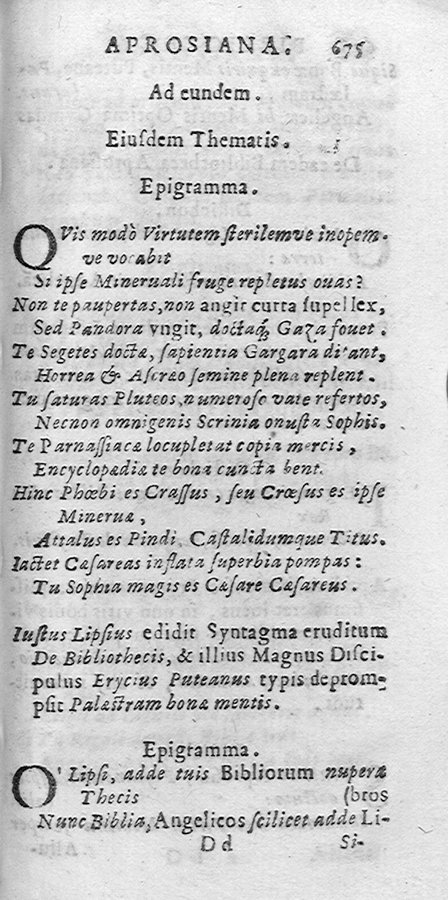 APROSIANA. 675
Ad eundem.
Eiuſdem Thematis.
Epigramma.
QVis modò Virtutem ſterilemve inopem-
ve vocabit
Si ipſe Mineruali fruge repletus ouas?
Non te paupertas, non angit curta ſupellex,
Sed Pandora vngit, doctaq́; Gaza fouet.
Te Segetes doctæ, ſapientia Gargara ditant,
Horrea & Aſcræo ſemine plena replent.
Tu ſaturas Pluteos, numeroſo vate refertos,
Necnon omnigenis Scrinia onuſta Sophis.
Te Parnaſſiacæ locupletat copia mercis,
Encyclopædia te bona cuncta bent.
Hinc Phœbi es Craſſus, ſeu Crœſus es ipſe
Mineruæ,
Attalus es Pindi, Caſtalidumque Titus.
Iactet Cæſareas inflata ſuperbia pompas:
Tu Sophia magis es Cæſare Cæſareus.
Iuſtus Lipſius edidit Syntagma eruditum
De Bibliothecis, & illius Magnus Diſci-
pulus Erycius Puteanus typis deprom-
pſit Palæſtram bonæ mentis.
Epigramma.
O' Lipſi, adde tuis Bibliorum nuperæ
Thecis (bros
Nunc Biblia, Angelicos ſcilicet adde Li-
D d Si-